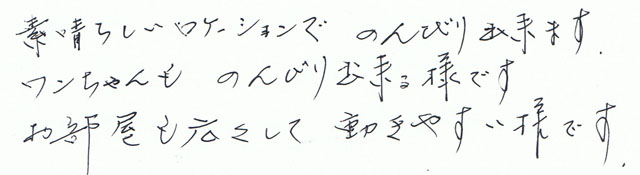 素晴らしいロケーションで のんびり出来ます.
ワンちゃんも のんびり出来る様です
お部屋も広くして 動きやすい様です.